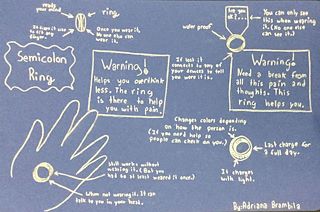 reads
your mind
ring
Once you wear it,
no one else can
wear it.
Semicolon
Ring
Warning!
Helps you overthink
less. The ring
is there to help
you with pain.
Are you
ok?...
You can only see
this when wearing
it. (No one else
can see it.)
water proof
If lost it
connects to any of
your devices to tell
you were it is.
Warning!
Need a break from
all this pain and
thoughts. This
ring helps you.
Changes colors depending
on how the person is.
(If you need help so
people can check on you.)
Still works without
wearing it. (But you
had to at least weared it once.)
When not wearing it. It can
talk to you in your head.
Last charge for
a full day.
It charges
with light.
By: Adriana Brambila